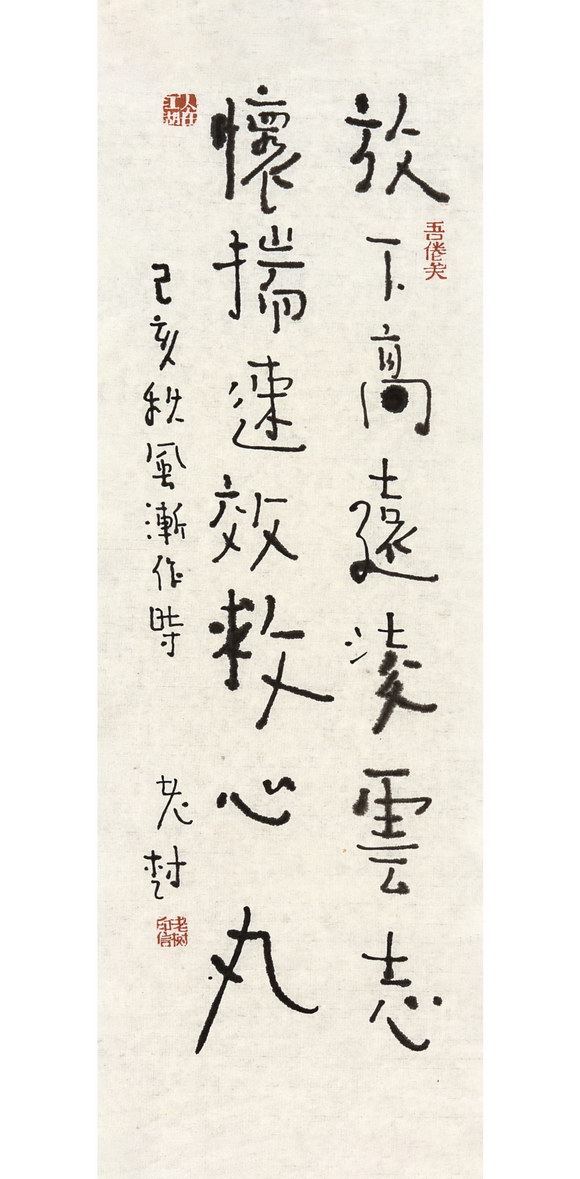 放下高遠凌雲志
吾倦矣
懷揣速效救心丸
人在江湖
己亥秋風漸作時
老樹
老树印信